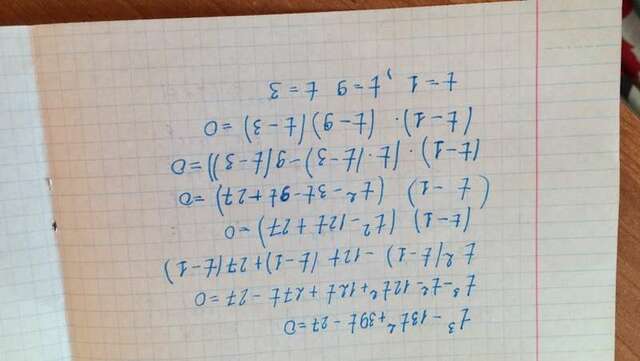 t³ - 13t² + 39t - 27 = 0
t³ - t² - 12t² + 12t + 27t - 27 = 0
t²(t - 1) - 12t (t - 1) + 27(t - 1)
(t - 1) (t² - 12t + 27) = 0
(t - 1) (t² - 3t - 9t + 27) = 0
(t - 1) · (t · (t - 3) - 9(t - 3)) = 0
(t - 1) · (t - 9) (t - 3) = 0
t = 1 , t = 9 t = 3